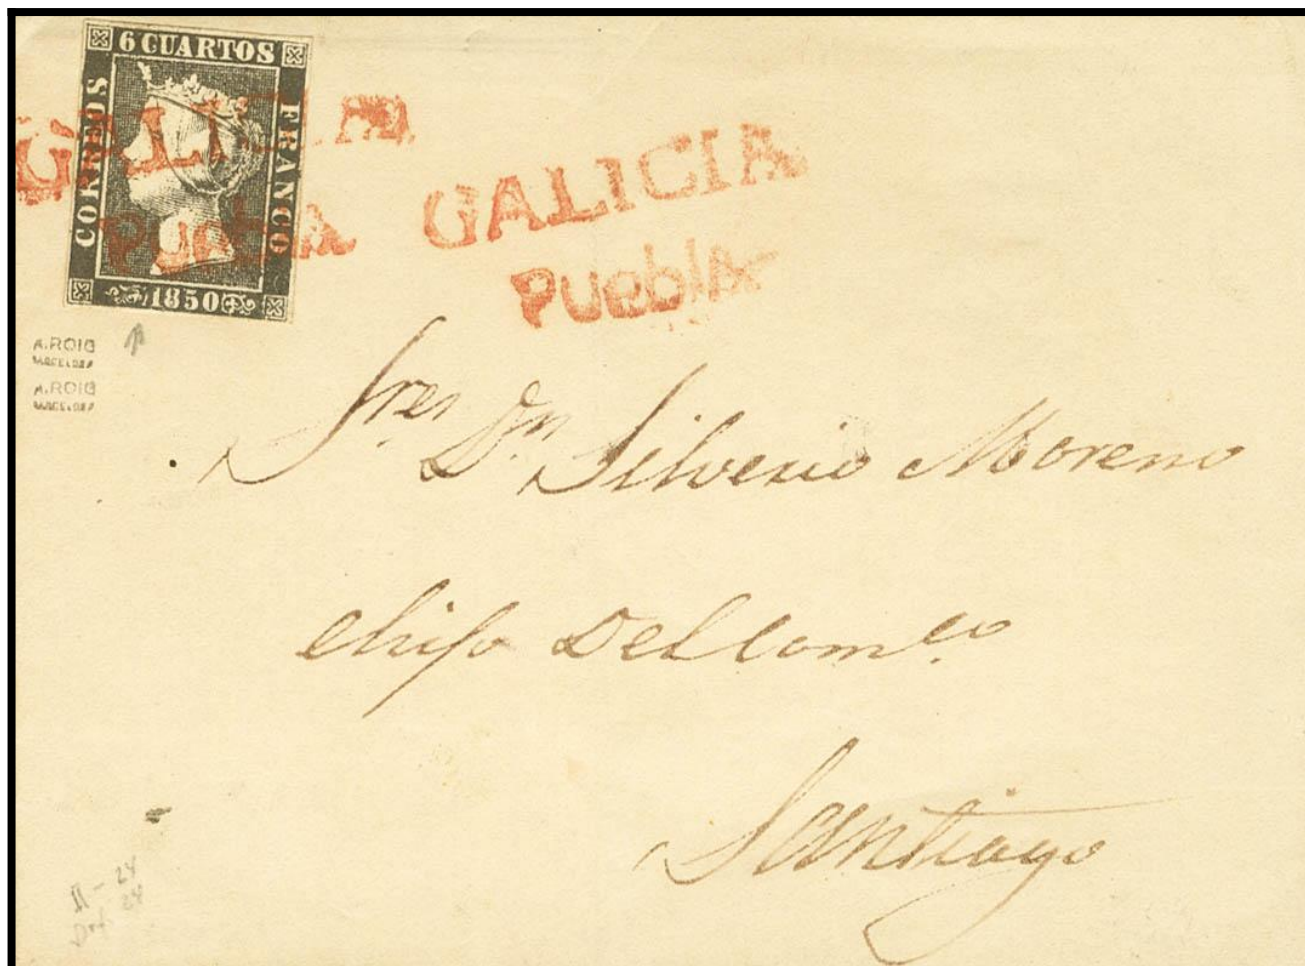 6 CUARTOS
CORREOS
FRANCO
1850
GALICIA
Puebla
GALICIA
PuebLA
A.ROIG
BARCELONA
A.ROIG
BARCELONA
Sres Dn Silverio Moreno
e hijo Del Comco
Santiago
II - 24
24